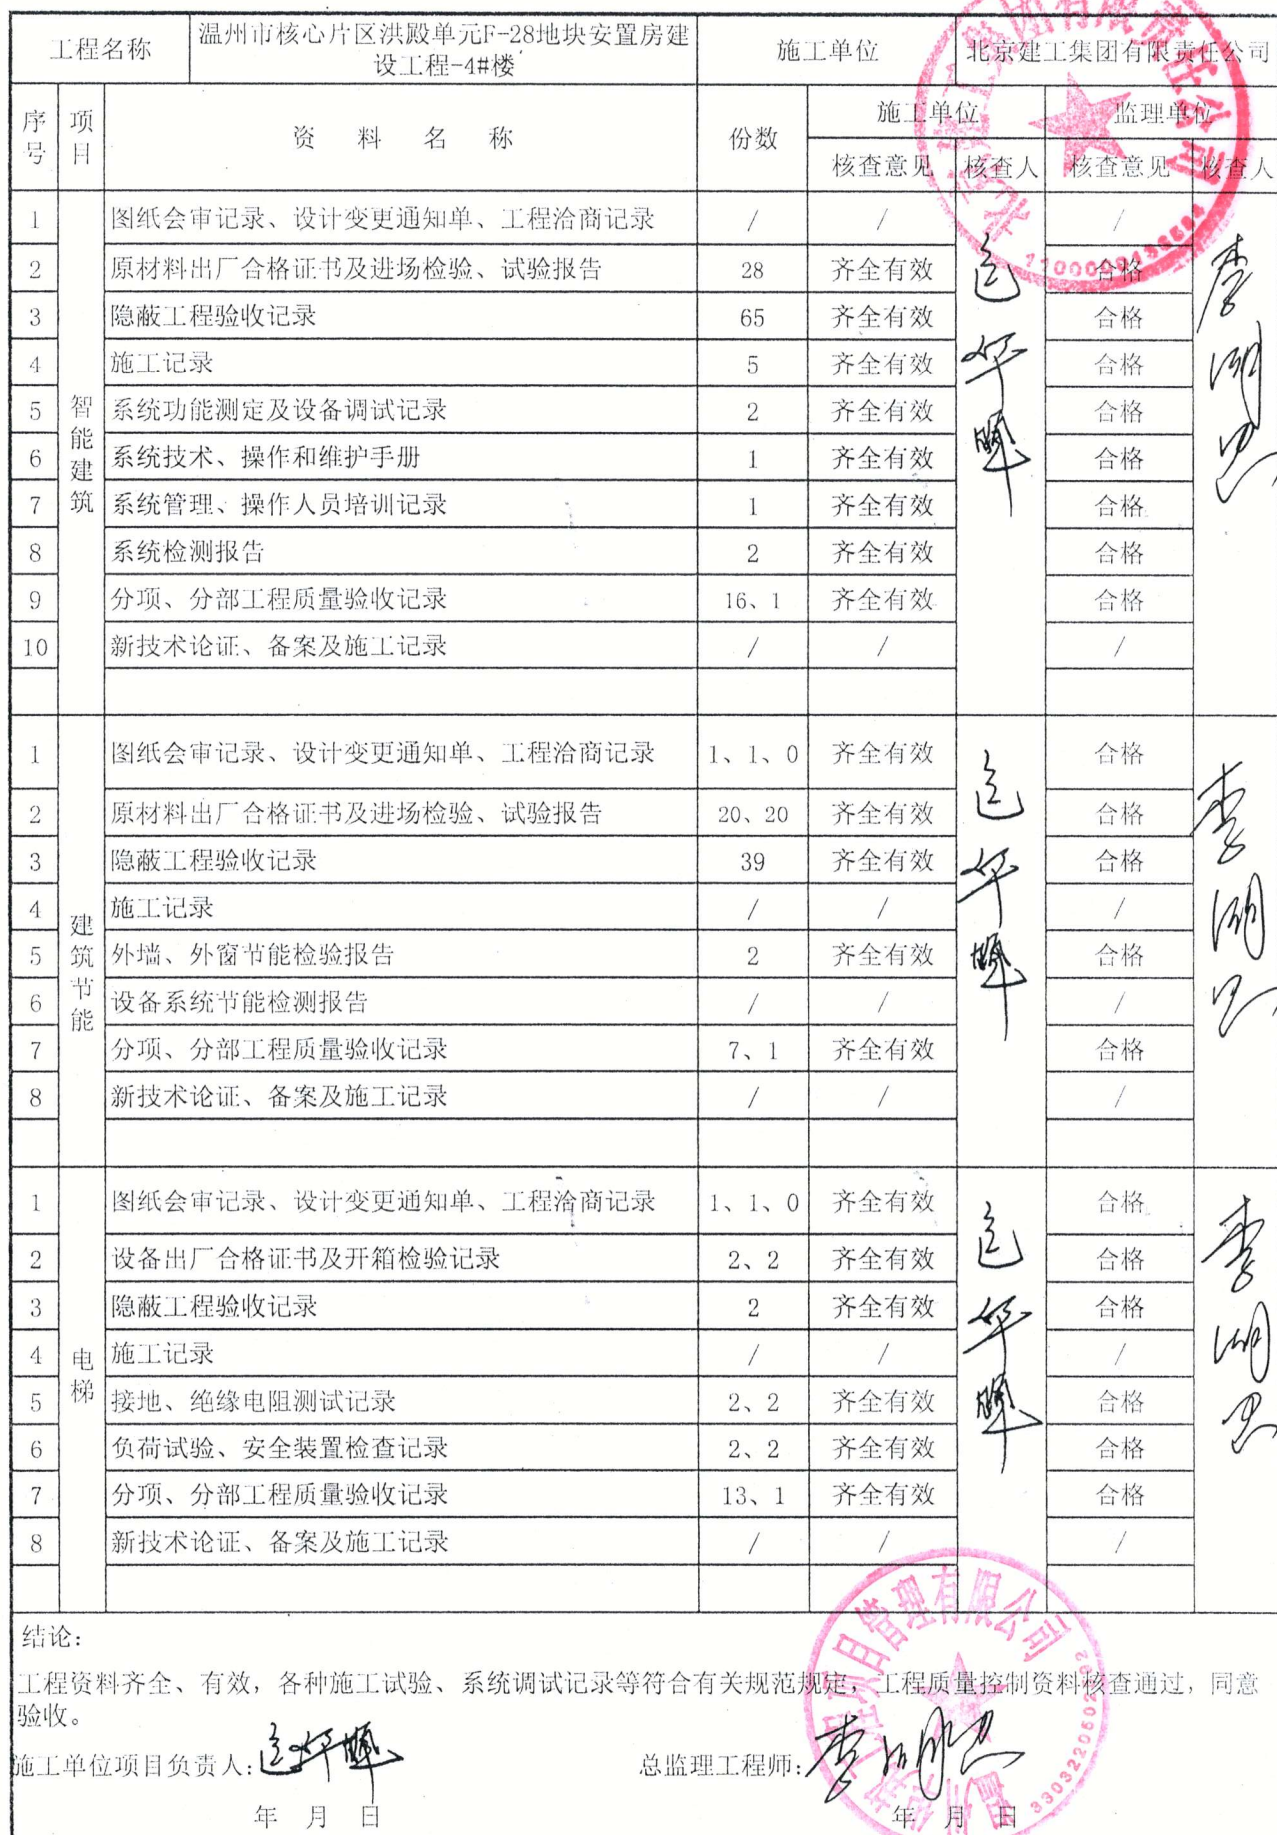 工程名称 温州市核心片区洪殿单元F-28地块安置房建 施工单位 北京建工集团有限责任公司
设工程-4#楼
序号 项目 资 料 名 称 份数 施工单位 监理单位
核查意见 核查人 核查意见 核查人
智能建筑
1 图纸会审记录、设计变更通知单、工程洽商记录 / / /
2 原材料出厂合格证书及进场检验、试验报告 28 齐全有效 合格
3 隐蔽工程验收记录 65 齐全有效 合格
4 施工记录 5 齐全有效 合格
5 系统功能测定及设备调试记录 2 齐全有效 合格
6 系统技术、操作和维护手册 1 齐全有效 合格
7 系统管理、操作人员培训记录 1 齐全有效 合格
8 系统检测报告 2 齐全有效 合格
9 分项、分部工程质量验收记录 16、1 齐全有效 合格
10 新技术论证、备案及施工记录 / / /
建筑节能
1 图纸会审记录、设计变更通知单、工程洽商记录 1、1、0 齐全有效 合格
2 原材料出厂合格证书及进场检验、试验报告 20、20 齐全有效 合格
3 隐蔽工程验收记录 39 齐全有效 合格
4 施工记录 / / /
5 外墙、外窗节能检验报告 2 齐全有效 合格
6 设备系统节能检测报告 / / /
7 分项、分部工程质量验收记录 7、1 齐全有效 合格
8 新技术论证、备案及施工记录 / / /
电梯
1 图纸会审记录、设计变更通知单、工程洽商记录 1、1、0 齐全有效 合格
2 设备出厂合格证书及开箱检验记录 2、2 齐全有效 合格
3 隐蔽工程验收记录 2 齐全有效 合格
4 施工记录 / / /
5 接地、绝缘电阻测试记录 2、2 齐全有效 合格
6 负荷试验、安全装置检查记录 2、2 齐全有效 合格
7 分项、分部工程质量验收记录 13、1 齐全有效 合格
8 新技术论证、备案及施工记录 / / /
结论:
工程资料齐全、有效，各种施工试验、系统调试记录等符合有关规范规定，工程质量控制资料核查通过，同意
验收。
施工单位项目负责人: 总监理工程师:
年 月 日 年 月 日